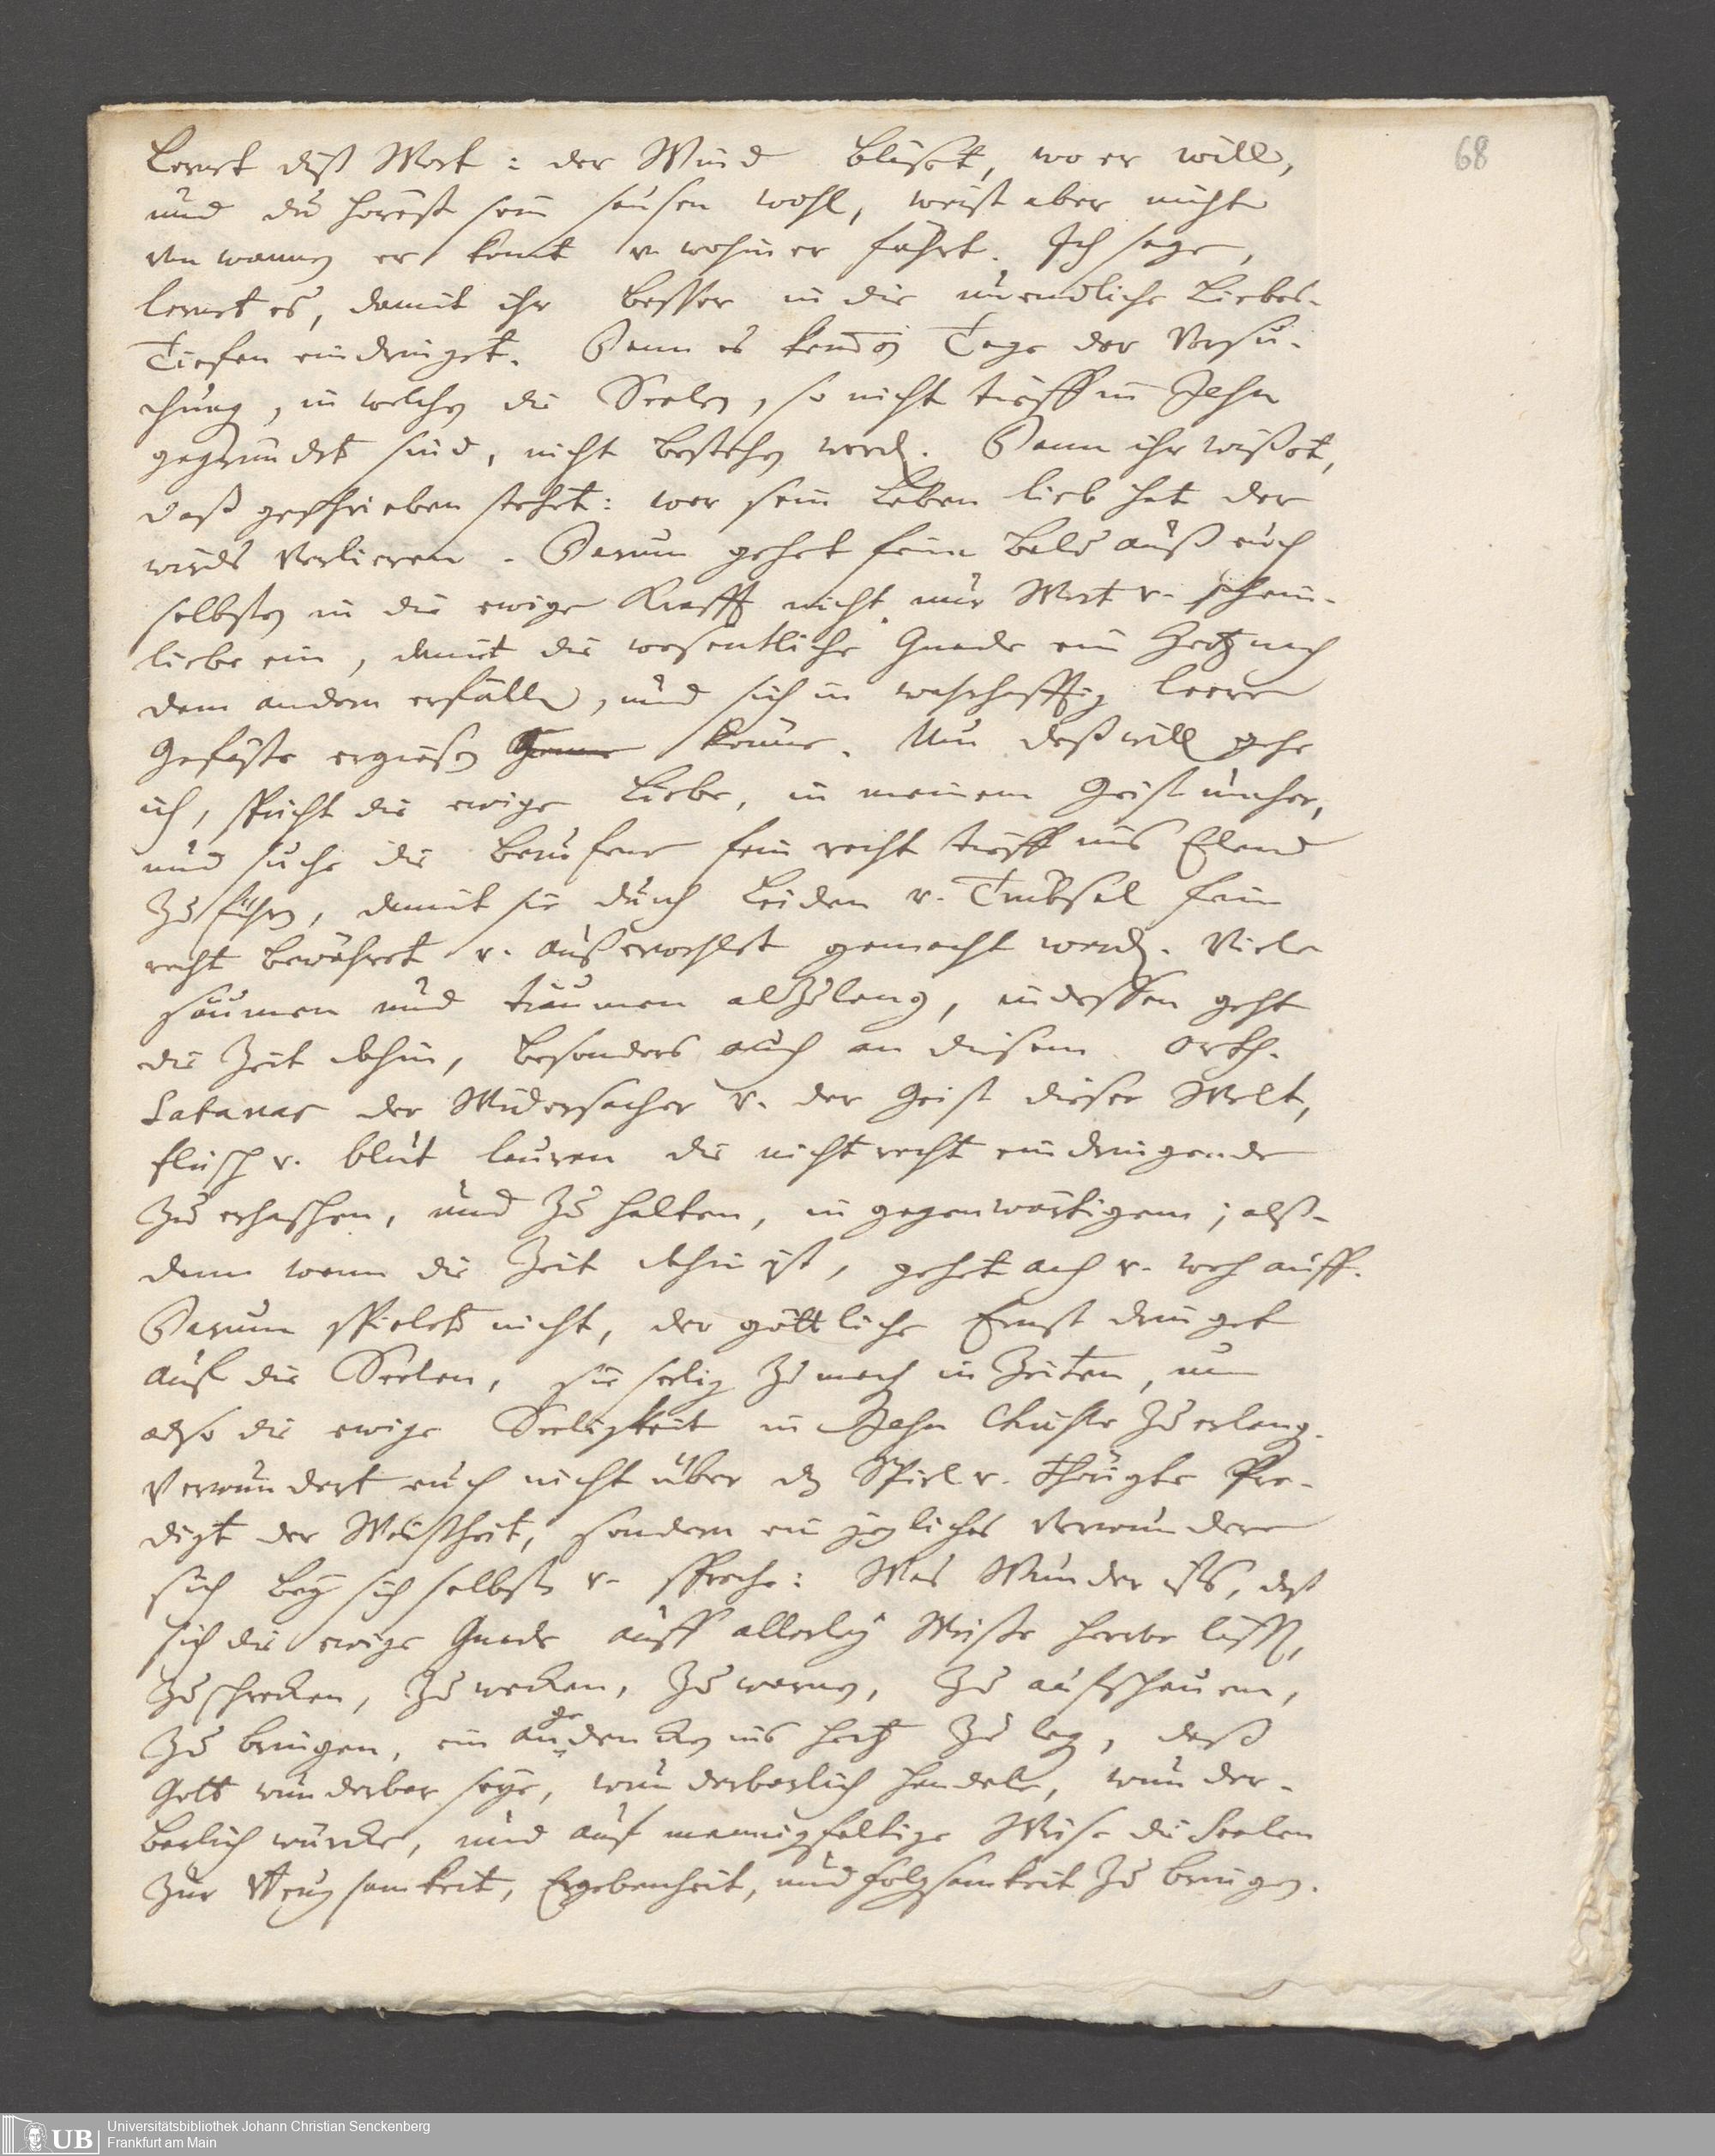 Lernet diß Wort: der Wind bläset, wo er will,
und du hörest sein sausen wohl, weist aber nicht
von wannen er komt v. wohin er fährt. Ich sage,
lernet es, damit ihr besser in die unendliche Liebes-
Tiefen eindringet. Dann es kom̅en Tage der Versu-
chung, in welchen die Seelen, so nicht tieff in Jesu
gegründet sind, nicht bestehen werden. Dann ihr wißet,
daß geschrieben stehet: wer sein Leben lieb hat der
wirds verlieren. Darum gehet fein bald auß euch
selbsten in die ewige Krafft nicht nur Wort v. schein-
liebe ein, damit die wesentliche Gnade ein Hertz nach
dem andern erfülle, und sich in wahrhafftig leere
Gefäße ergießen könne. Um deßwill gehe
ich, spricht die ewige Liebe, in meinem Geist umher,
und suche die beruffene fein recht tieff ins Elend
zu führen, damit sie durch Leiden v. Trübsal fein
recht bewähret v. außerwehlet gemacht werden. Viele
säumen und träumen alzulang, indessen geht
die Zeit dahin, besonders auch an diesem Orth.
Satanas der Widersacher v. der Geist dieser Welt,
fleisch v. blut lauren die nicht recht eindringende
zu erhaschen, und zu halten, in gegenwärtigem; alß-
dann wann die Zeit dahin ist, gehet ach v. weh auff.
Darum spielets nicht, der göttliche Ernst dringet
auf die Seelen, sie selig zu machen in Zeiten, um
also die ewige Seeligkeit in Jesu Christo zu erlangen.
Verwundert euch nicht über das Spiel v. Predigt
digt der Weißheit, sondern ein jegliches verwundere
sich bey sich selbsten v. spreche: Was Wunder ists, daß
sich die ewige Gnade auff allerley Weiße herabe läßt,
zu schrecken, zu wecken, zu warnen, zu aufscheuren,
zu bringen, ein angedencken ins hertz zu legen, daß
Gott wunderbar seye, wunderbarlich handele, wunder-
barlich würcke, und auf mannigfaltige Weise die Seelen
zur Beugsamkeit, Ergebenheit, und folgsamkeit zu bringen.
68
UB
Universitätsbibliothek Johann Christian Senckenberg
Frankfurt am Main